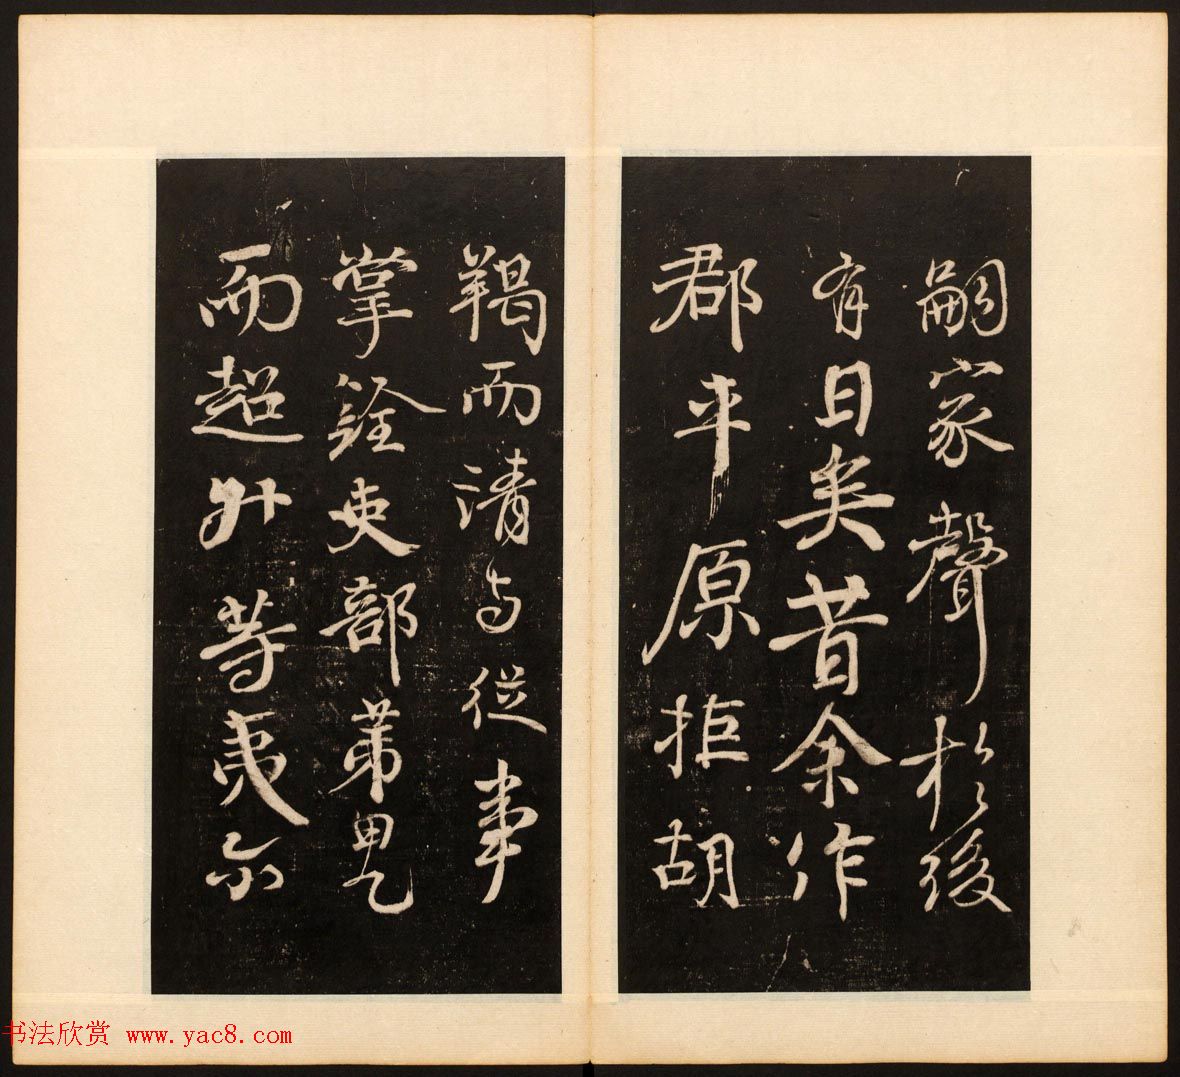 嗣家聲於後
有日矣昔余作
郡平原拒胡
羯而清与從事
掌銓吏部苐甲乙
而超升等夷尒
书法欣赏 www.yac8.com